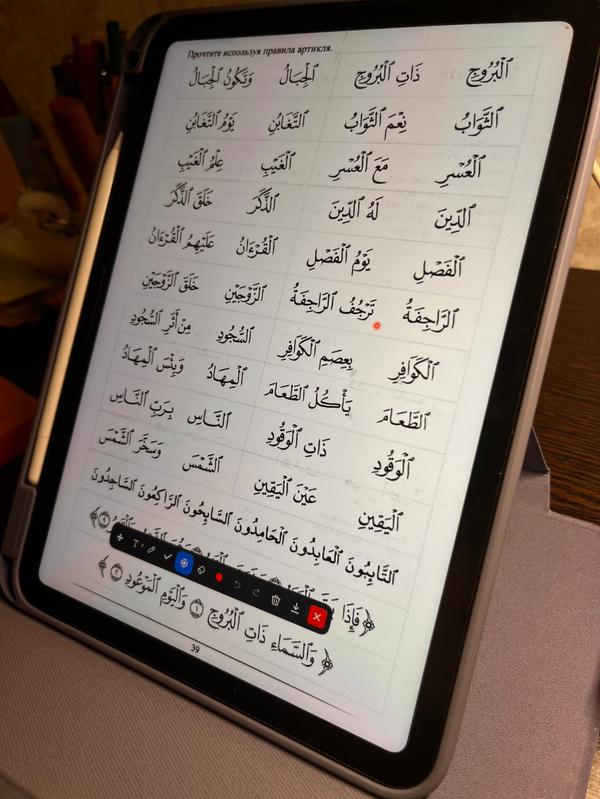 Прочтите используя правила артикля.
ٱلْبُرُوجِ ذَاتِ ٱلْبُرُوجِ ٱلْجِبَالُ وَتَكُونُ ٱلْجِبَالُ
ٱلثَّوَابُ نِعْمَ ٱلثَّوَابُ ٱلتَّغَابُنِ يَوْمُ ٱلتَّغَابُنِ
ٱلْعُسْرِ مَعَ ٱلْعُسْرِ ٱلْغَيْبِ عِلْمُ ٱلْغَيْبِ
ٱلدِّينَ لَهُ ٱلدِّينَ ٱلذَّكَرَ خَلَقَ ٱلذَّكَرَ
ٱلْفَصْلِ يَوْمُ ٱلْفَصْلِ ٱلْقُرْءَانُ عَلَيْهِمُ ٱلْقُرْءَانُ
ٱلرَّاجِفَةُ تَرْجُفُ ٱلرَّاجِفَةُ ٱلزَّوْجَيْنِ خَلَقَ ٱلزَّوْجَيْنِ
ٱلْكَوَافِرِ بِعِصَمِ ٱلْكَوَافِرِ ٱلسُّجُودِ مِنْ أَثَرِ ٱلسُّجُودِ
ٱلطَّعَامَ يَأْكُلُ ٱلطَّعَامَ ٱلْمِهَادُ وَبِئْسَ ٱلْمِهَادُ
ٱلْوَقُودِ ذَاتِ ٱلْوَقُودِ ٱلنَّاسِ بِرَبِّ ٱلنَّاسِ
ٱلْيَقِينِ عَيْنَ ٱلْيَقِينِ ٱلشَّمْسَ وَسَخَّرَ ٱلشَّمْسَ
ٱلتَّائِبُونَ ٱلْعَابِدُونَ ٱلْحَامِدُونَ ٱلسَّائِحُونَ ٱلرَّاكِعُونَ ٱلسَّاجِدُونَ
﴿ فَإِذَا
﴿ وَٱلسَّمَاءِ ذَاتِ ٱلْبُرُوجِ ١ وَٱلْيَوْمِ ٱلْمَوْعُودِ ٢ ﴾
39